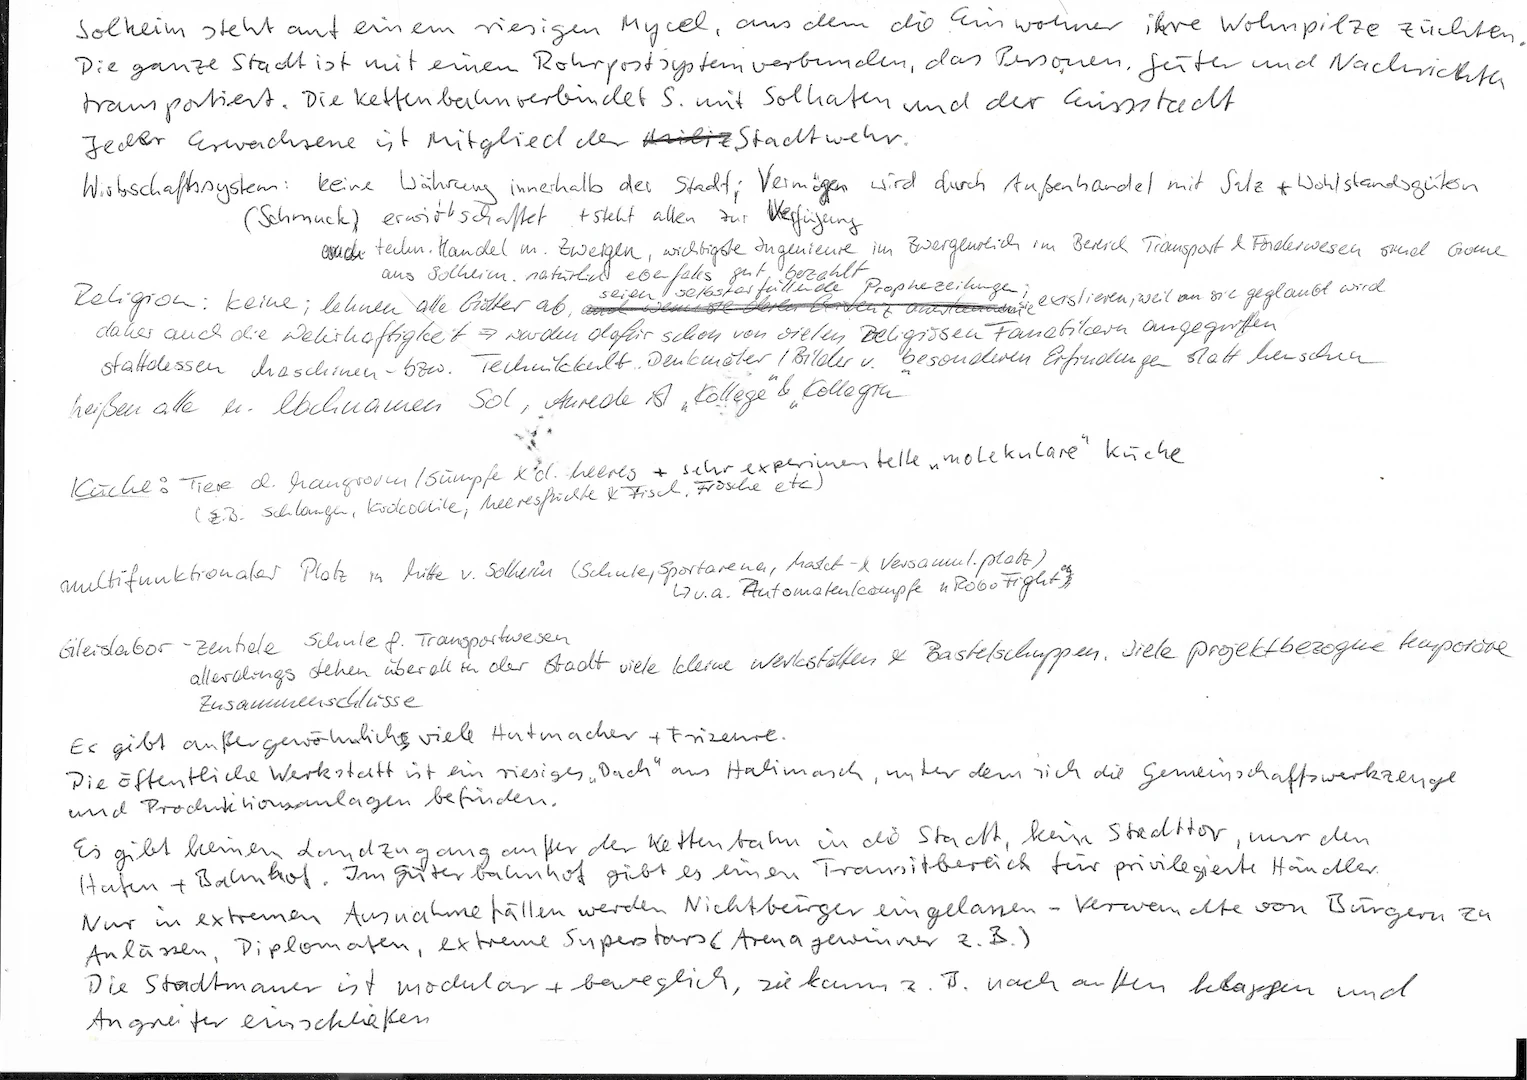 Solheim steht auf einem riesigen Mycel, aus dem die Einwohner ihre Wohnpilze züchten.
Die ganze Stadt ist mit einem Rohrpostsystem verbunden, das Personen, Güter und Nachrichten
transportiert. Die Kettenbahn verbindet S. mit Solhafen und der
Jeder Erwachsene ist Mitglied der Miliz Stadtwehr.
Wirtschaftssystem: keine Währung innerhalb der Stadt; Vermögen wird durch Außenhandel mit Salz + Wohlstandsgütern
(Schmuck) erwirtschaftet + steht allen zur Verfügung
auch techn. Handel m. Zwergen, wichtigste Ingenieure im Zwergenreich im Bereich Transport & Förderwesen sind Gnome
aus Solheim. natürlich ebenfalls gut bezahlt
seien selbsterfüllende Prophezeihungen;
Religion: keine; lehnen alle Götter ab, sie existieren, weil an sie geglaubt wird
daher auch die Wehrhaftigkeit ⇒ wurden dafür schon von vielen religiösen Fanatikern angegriffen
stattdessen Maschinen- bzw. Technikkult. Denkmäler / Bilder v. besonderen Erfindungen statt Menschen
heißen alle m. Nachnamen Sol, Anrede ist „Kollege" & „Kollegin"
Küche: Tiere d. Mangroven/Sümpfe & d. Meeres + sehr experimentelle „molekulare" Küche
(z.B. Schlangen, Krokodile, Meeresfrüchte & Fisch, Frösche etc)
multifunktionaler Platz in Mitte v. Solheim (Schule, Sportarena, Markt- & Versamml.platz)
↳ u.a. Automatenkämpfe „RoboFight"
Gleislabor - zentrale Schule f. Transportwesen
allerdings stehen überall in der Stadt viele kleine Werkstätten & Bastelschuppen. viele projektbezogene temporäre
Zusammenschlüsse
Es gibt außergewöhnlich viele Hutmacher + Frizeure.
Die öffentliche Werkstatt ist ein riesiges „Dach" aus Halimasch, unter dem sich die Gemeinschaftswerkzeuge
und Produktionsanlagen befinden.
Es gibt keinen Landzugang außer der Kettenbahn in die Stadt, kein Stadttor, nur den
Hafen + Bahnhof. Im Güterbahnhof gibt es einen Transitbereich für privilegierte Händler.
Nur in extremen Ausnahmefällen werden Nichtbürger eingelassen - Verwandte von Bürgern zu
Anlässen, Diplomaten, extreme Superstars (Arenagewinner z.B.)
Die Stadtmauer ist modular + beweglich, sie kann z.B. nach außen klappen und
Angreifer einschließen